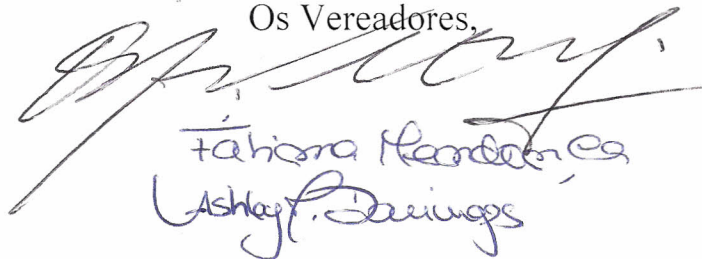 Os Vereadores,
Fabiana Mendonça
Ashley P. Domingos